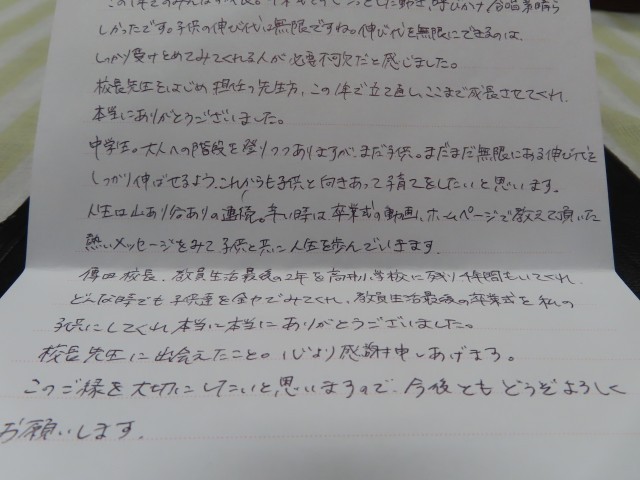 この1年でのみんなの成長。卒業式でのしっとした動き、呼びかけ、合唱素晴ら
しかったです。子供の伸び代は無限ですね。伸び代を無限にできるのは、
しっかり受けとめてみてくれる人が必要不可欠だと感じました。
校長先生をはじめ担任の先生方、この1年で立て直し、ここまで成長させてくれ、
本当にありがとうございました。
中学生。大人への階段を登りつつありますが、まだ子供。まだまだ無限にある伸び代を
しっかり伸ばせるよう、これからも子供と向きあって子育てをしたいと思います。
人生は山あり谷ありの連続。辛い時は卒業式の動画、ホームページで教えて頂いた
熱いメッセージをみて子供と共に人生を歩んでいきます。
傳田校長、教員生活最後の2年を高井小学校に残り 時間をいてくれ、
どんな時でも子供達を全力でみてくれ、教員生活最後の卒業式を私の
子供にしてくれ本当に本当にありがとうございました。
校長先生に出会えたこと。心より感謝申しあげます。
このご縁を大切にしたいと思いますので、今後ともどうぞよろしく
お願いします。